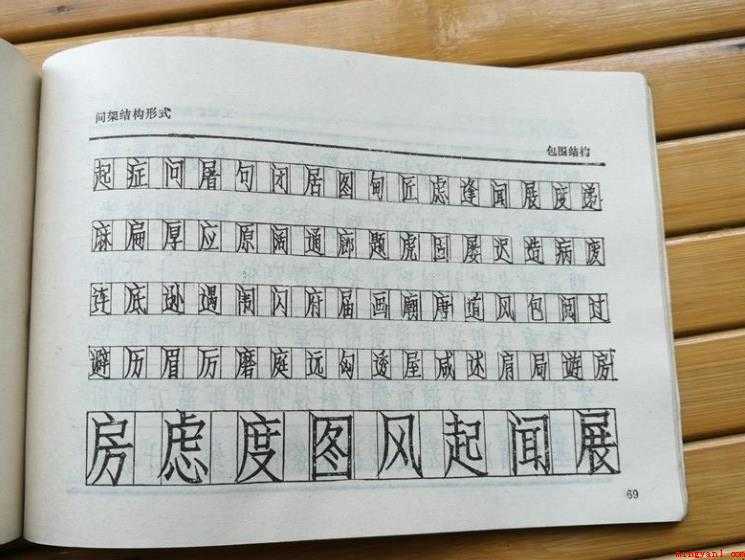 间架结构形式
包围结构
起症问屠句闭居图甸匠虑逢闻展度递
麻扁厚应原阔通廊题虎固屡迟造病废
连底逊遇闹闪府届画庙唐道风包阅过
避历眉厉磨庭远匈透屋咸述肩局遊房
房虑度图风起闻展
69
mingyan1.com